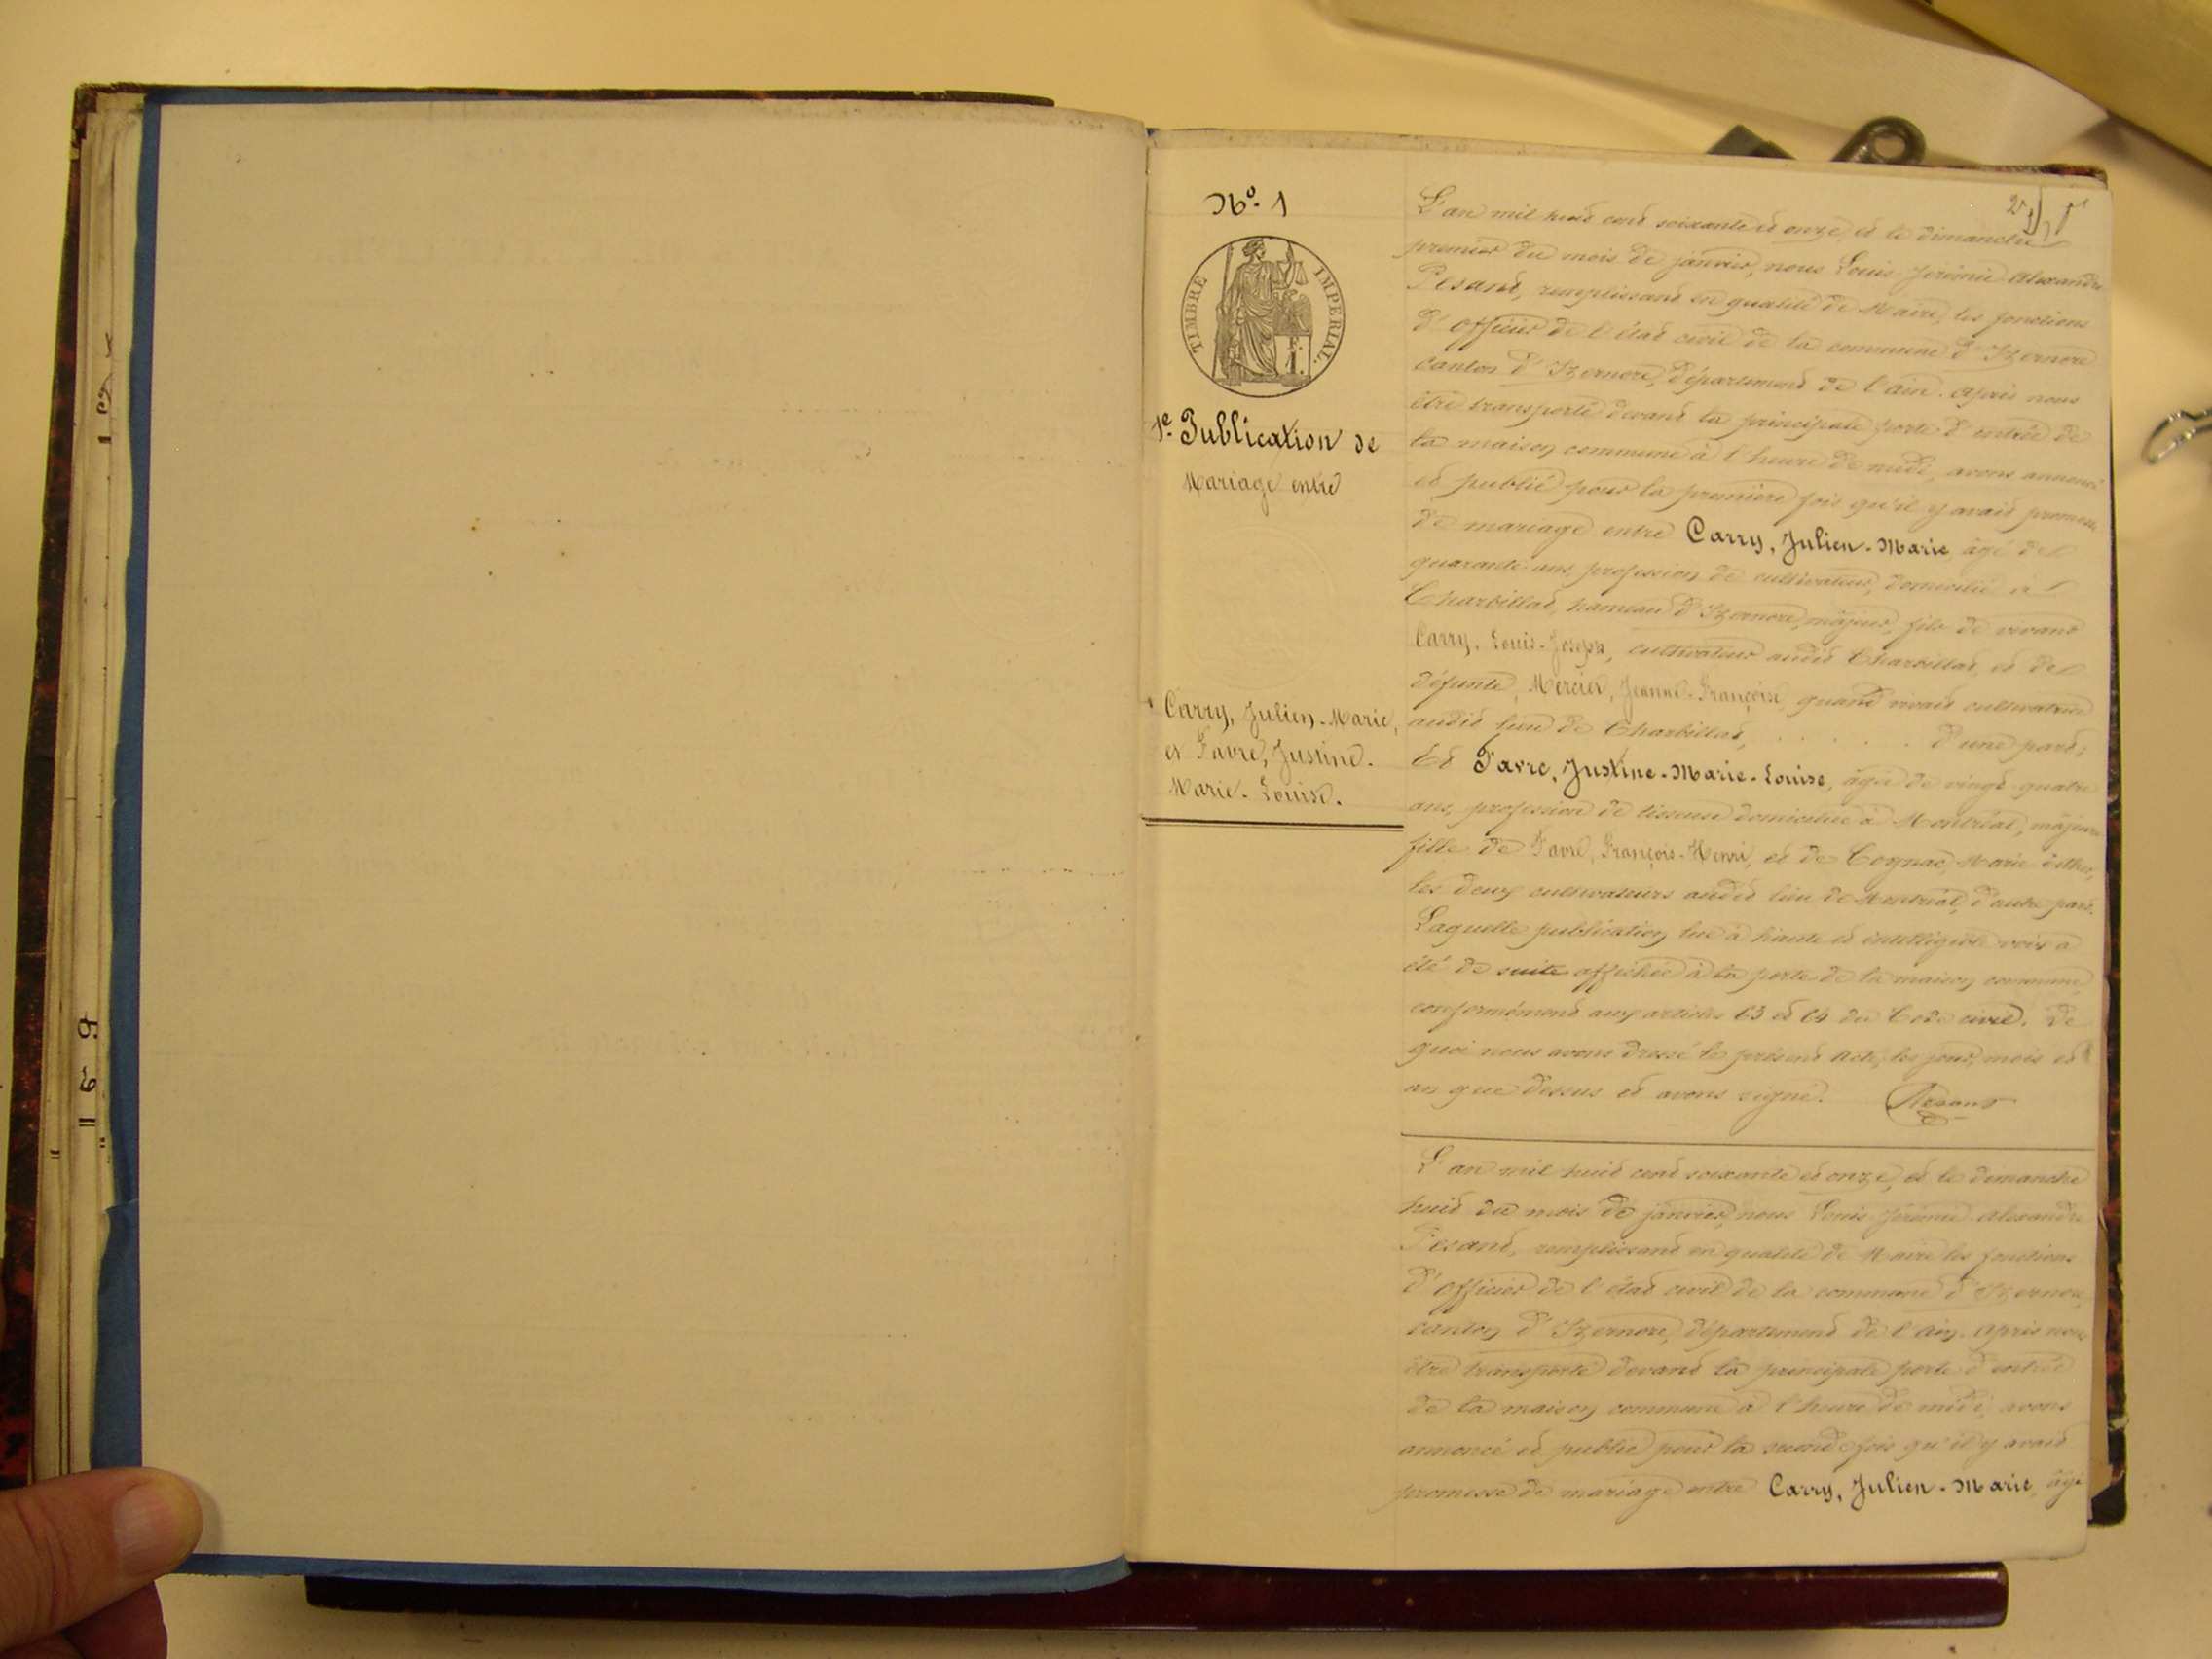 No. 1
TIMBRE IMPERIAL.
1e. Publication de
Mariage entre
Carry, Julien-Marie,
et Favre, Justine-
Marie-Louise.
L'an mil huit cent soixante et onze, et le dimanche
premier du mois de janvier, nous Louis Jérémie Alexandre
Pesant, remplissant en qualité de Maire, les fonctions
d'officier de l'état civil de la commune d'Izernore
canton d'Izernore, département de l'ain. Après nous
être transporté devant la principale porte d'entrée de
la maison commune à l'heure de midi, avons annoncé
et publié pour la première fois qu'il y avait promesse
de mariage entre Carry, Julien-Marie, âgé de
quarante ans, profession de cultivateur, domicilié à
Charbillat, hameau d'Izernore, majeur, fils de vivant
Carry, Louis-Joseph, cultivateur audit Charbillat, et de
défunte, Mercier, Jeanne-Françoise, quand vivait cultivatrice
audit lieu de Charbillat, . . . . . d'une part;
Et Favre, Justine-Marie-Louise, âgée de vingt-quatre
ans, profession de tisseuse domiciliée à Montréal, majeure
fille de Favre, François-Henri, et de Cognac, Marie
les deux cultivateurs audit lieu de Montréal, d'autre part.
Laquelle publication lue à haute et intelligible voix a
été de suite affichée à la porte de la maison commune,
conformément aux articles 63 et 64 du Code civil. De
quoi nous avons dressé le présent acte, les jour, mois et
an que dessus et avons signé. Pesant
L'an mil huit cent soixante et onze, et le dimanche
huit du mois de janvier, nous Louis Jérémie Alexandre
Pesant, remplissant en qualité de Maire les fonctions
d'officier de l'état civil de la commune d'Izernore,
canton d'Izernore, département de l'ain. Après nous
être transporté devant la principale porte d'entrée
de la maison commune à l'heure de midi, avons
annoncé et publié pour la seconde fois qu'il y avait
promesse de mariage entre Carry, Julien-Marie, âgé